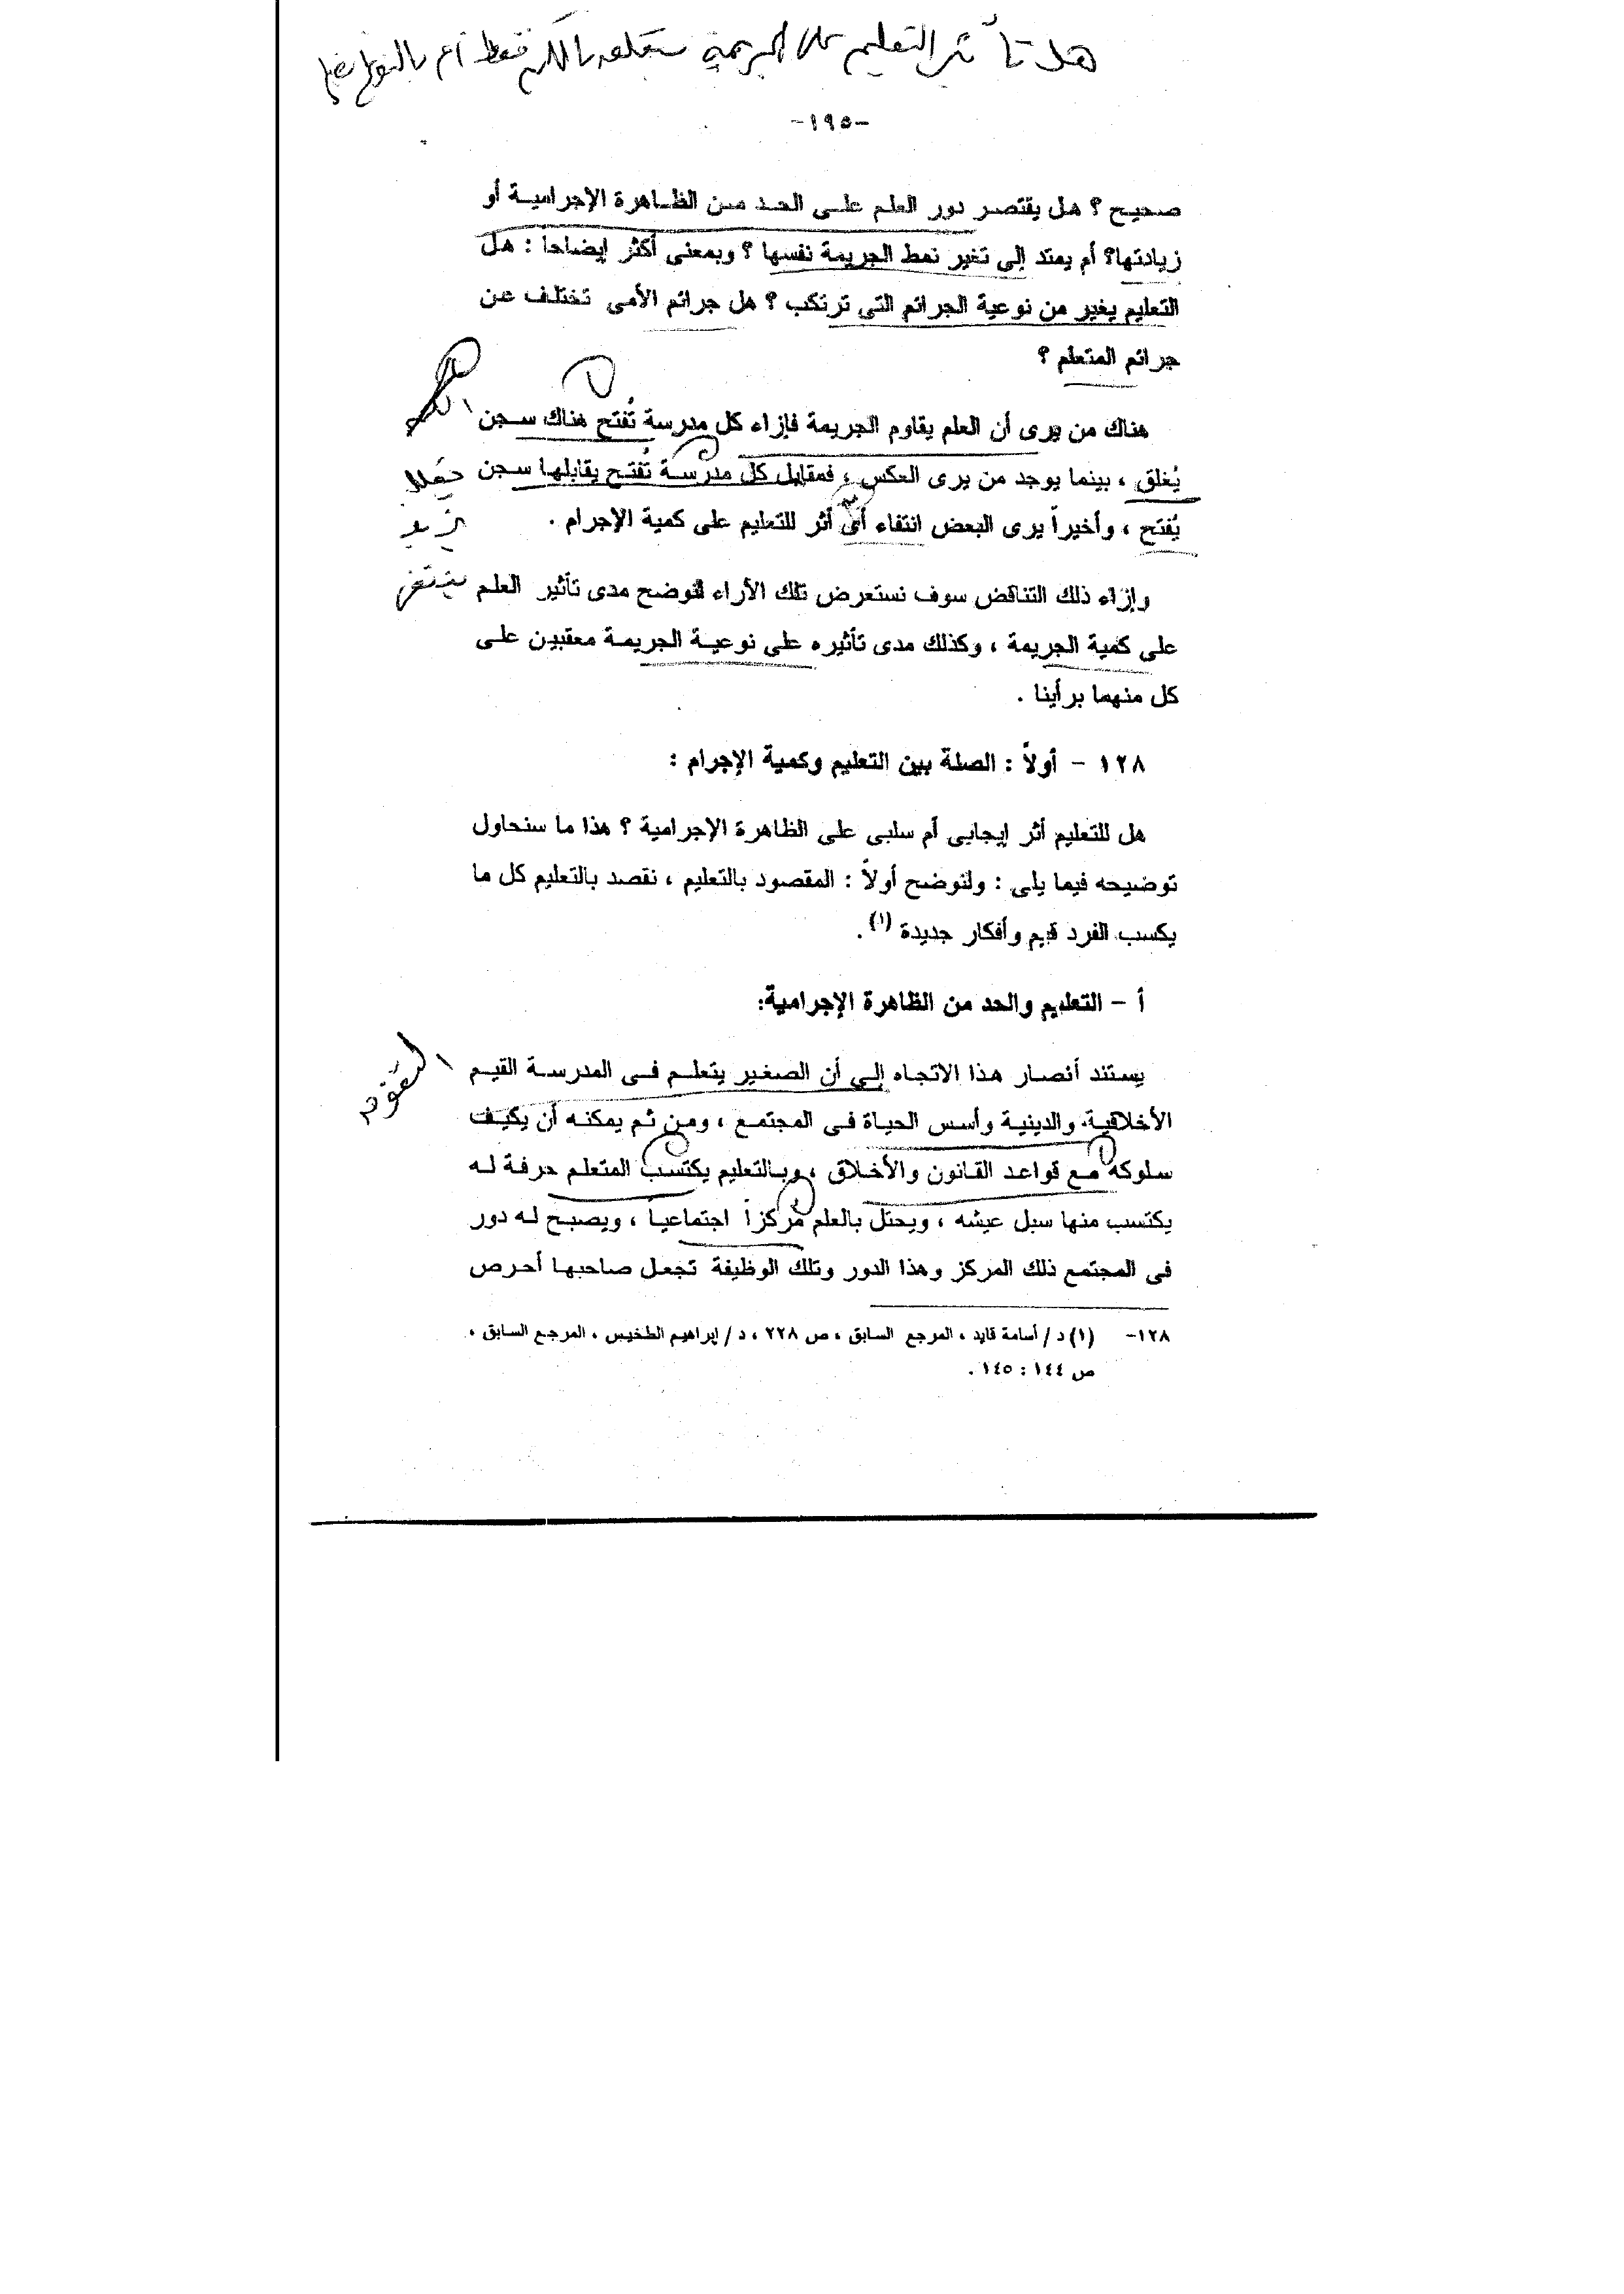 هل تأثير التعليم على الجريمة يتعلق بالكم فقط أم بالنوع أيضا
-١٩٥-
صحيح ؟ هل يقتصر دور العلم على الحد من الظاهرة الإجرامية أو
زيادتها؟ أم يمتد إلى تغير نمط الجريمة نفسها ؟ وبمعنى أكثر إيضاحاً : هل
التعليم يغير من نوعية الجرائم التى ترتكب ؟ هل جرائم الأمى تختلف عن
جرائم المتعلم ؟
الكم
١
هناك من يرى أن العلم يقاوم الجريمة فإزاء كل مدرسة تُفتح هناك سجن
يُغلق ، بينما يوجد من يرى العكس ، فمقابل كل مدرسة تُفتح يقابلها سجن
يُفتح ، وأخيراً يرى البعض انتفاء أى أثر للتعليم على كمية الإجرام .
يزيد
وإزاء ذلك التناقض سوف نستعرض تلك الأراء لنوضح مدى تأثير العلم
على كمية الجريمة ، وكذلك مدى تأثيره على نوعية الجريمة معقبين على
كل منهما برأينا .
١٢٨ - أولاً : الصلة بين التعليم وكمية الإجرام :
هل للتعليم أثر إيجابى أم سلبى على الظاهرة الإجرامية ؟ هذا ما سنحاول
توضيحه فيما يلى : ولنوضح أولاً : المقصود بالتعليم ، نقصد بالتعليم كل ما
يكسب الفرد قيم وأفكار جديدة (١) .
أ - التعليم والحد من الظاهرة الإجرامية:
يستند أنصار هذا الاتجاه إلى أن الصغير يتعلم فى المدرسة القيم
الأخلاقية والدينية وأسس الحياة فى المجتمع ، ومن ثم يمكنه أن يكيف
سلوكه مع قواعد القانون والأخلاق ، وبالتعليم يكتسب المتعلم حرفة له
يكتسب منها سبل عيشه ، ويحتل بالعلم مركزاً اجتماعياً ، ويصبح له دور
فى المجتمع ذلك المركز وهذا الدور وتلك الوظيفة تجعل صاحبها أحرص
١٢٨- (١) د / أسامة قايد ، المرجع السابق ، ص ٢٢٨ ، د / إبراهيم الطخيس ، المرجع السابق ،
ص ١٤٤ : ١٤٥ .